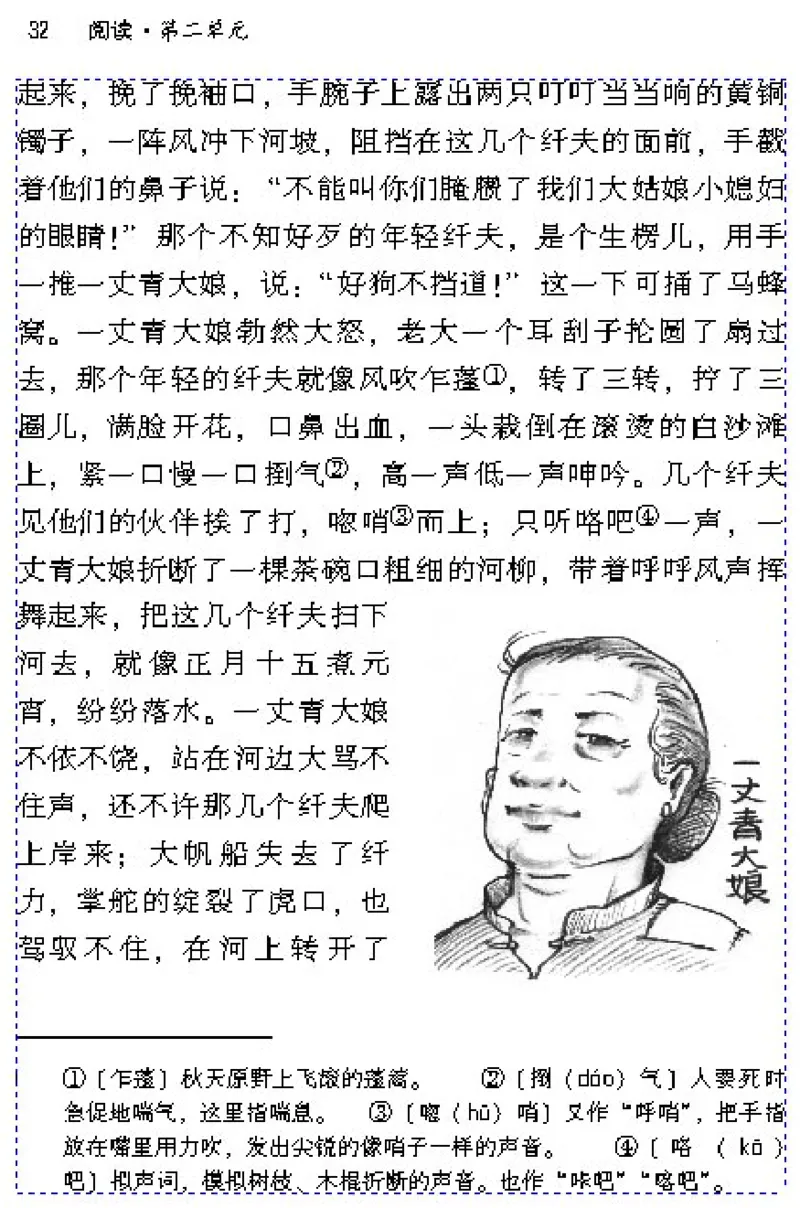 32 阅读·第二单元
起来，挽了挽袖口，手腕子上露出两只叮叮当当响的黄铜
镯子，一阵风冲下河坡，阻挡在这几个纤夫的面前，手戳
着他们的鼻子说：“不能叫你们腌臜了我们大姑娘小媳妇
的眼睛！”那个不知好歹的年轻纤夫，是个生楞儿，用手
一推一丈青大娘，说：“好狗不挡道！”这一下可捅了马蜂
窝。一丈青大娘勃然大怒，老大一个耳刮子抡圆了扇过
去，那个年轻的纤夫就像风吹乍蓬①，转了三转，拧了三
圈儿，满脸开花，口鼻出血，一头栽倒在滚烫的白沙滩
上，紧一口慢一口捯气②，高一声低一声呻吟。几个纤夫
见他们的伙伴挨了打，唿哨③而上；只听咯吧④一声，一
丈青大娘折断了一棵茶碗口粗细的河柳，带着呼呼风声挥
舞起来，把这几个纤夫扫下
河去，就像正月十五煮元
宵，纷纷落水。一丈青大娘
不依不饶，站在河边大骂不
住声，还不许那几个纤夫爬
上岸来；大帆船失去了纤
力，掌舵的绽裂了虎口，也
驾驭不住，在河上转开了
一丈青大娘
①〔乍蓬〕秋天原野上飞滚的蓬蒿。 ②〔捯（dáo）气〕人要死时
急促地喘气，这里指喘息。 ③〔唿（hū）哨〕又作“呼哨”，把手指
放在嘴里用力吹，发出尖锐的像哨子一样的声音。 ④〔咯（kā）
吧〕拟声词，模拟树枝、木棍折断的声音。也作“咔吧”“喀吧”。